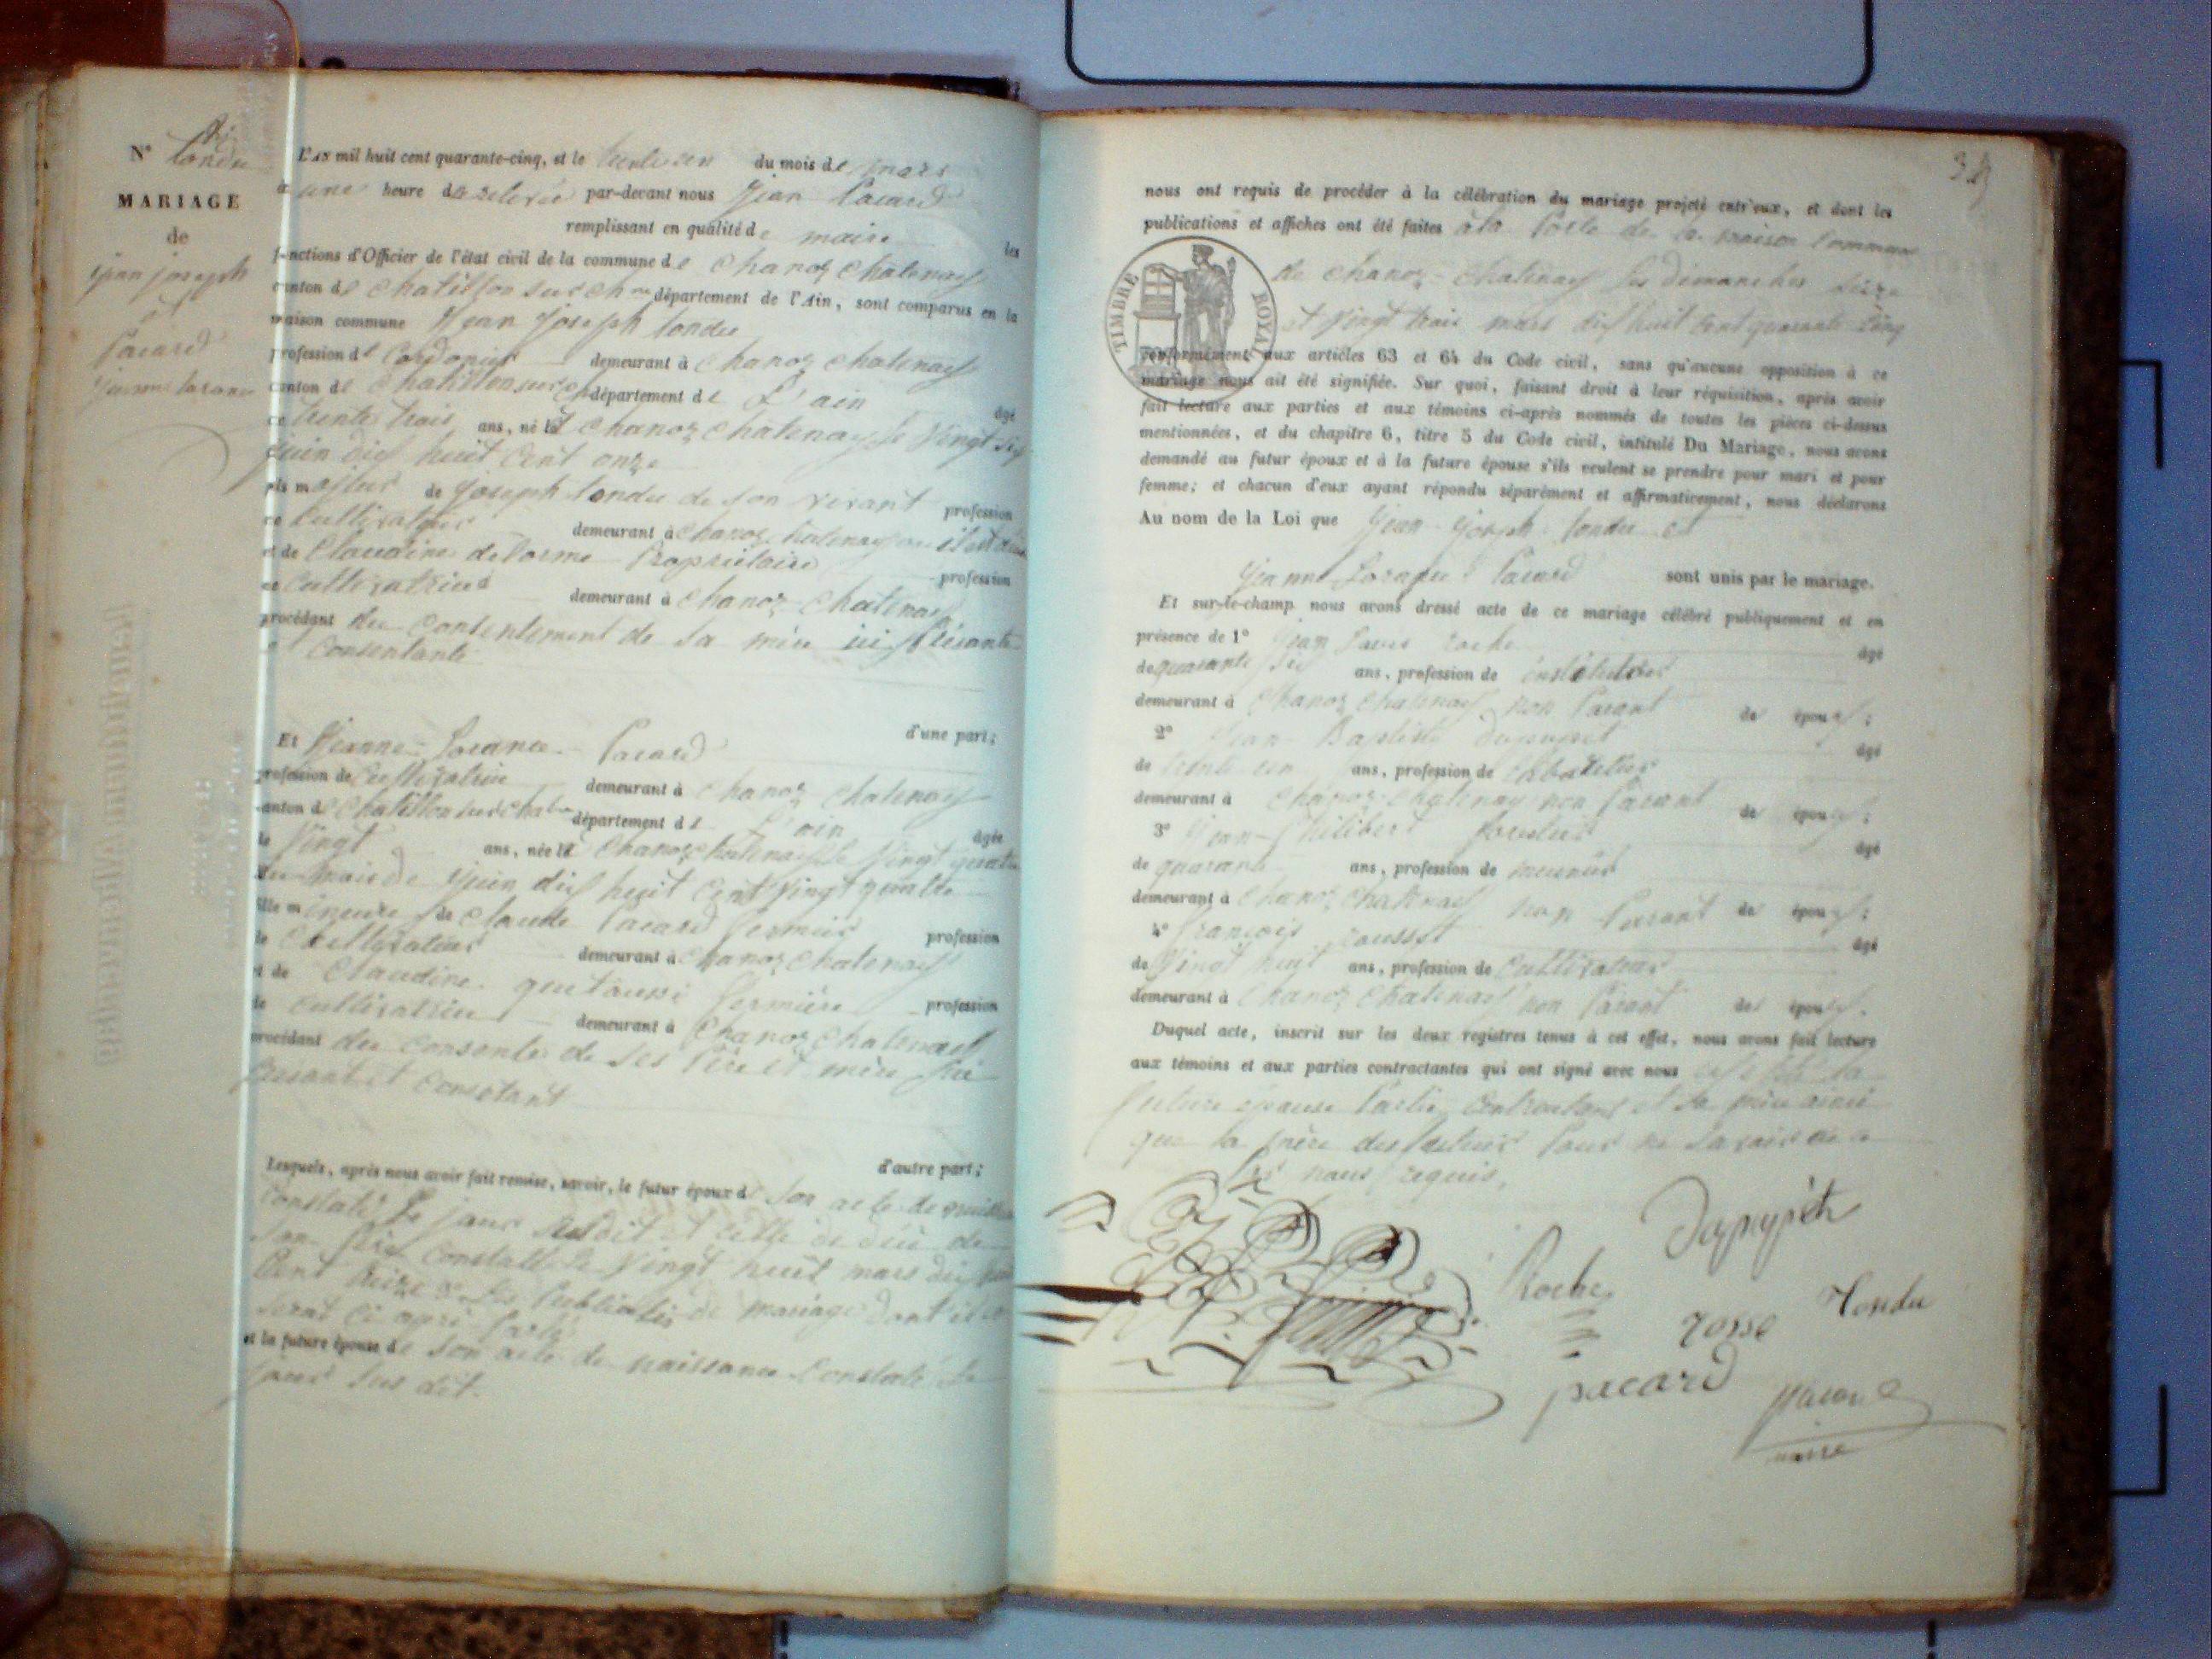 N° tondu
MARIAGE
de
jean joseph
et
Pacard
jeanne lorance
L'AN mil huit cent quarante-cinq, et le trente un du mois de mars
à une heure de relevée par-devant nous jean Pacard
remplissant en qualité de maire les
fonctions d'Officier de l'état civil de la commune de Chanoz Chatenay
canton de Chatillon sur Ch département de l'Ain, sont comparus en la
maison commune jean joseph tondu
profession de Cordonier demeurant à Chanoz Chatenay
canton de Chatillon sur Ch département de L'ain âgé
de trente trois ans, né à Chanoz Chatenay le vingt six
juin dix huit Cent onze
fils majeur de joseph tondu de son vivant profession
de Cultivateur demeurant à Chanoz Chatenay
et de Claudine delorme Propriétaire profession
de cultivatrice demeurant à Chanoz Chatenay
procédant du Consentement de sa mère ici présante
et Consentante
d'une part;
Et jeanne lorance Pacard
profession de Cultivatrice demeurant à Chanoz Chatenay
canton de Chatillon sur Chal département de l'ain âgée
de Vingt ans, née à Chanoz Chatenay le vingt quatre
du mois de juin dix huit Cent vingt quatre
fille mineure de Claude Pacard fermier profession
de Cultivateur demeurant à Chanoz Chatenay
et de Claudine fermière profession
de Cultivatrice demeurant à Chanoz Chatenay
procédant du Consente de ses Père et mère ici
présant et Consetant
d'autre part;
Lesquels, après nous avoir fait remise, savoir, le futur époux de son acte de naissance
Constaté le jour susdit et celle de décè de
son père Constatée le Vingt huit mars dix huit
Cent treize les publications de mariage dont il
serat Ci après Parlé
et la future épouse de son acte de naissance Constaté le
jour sus dit.
nous ont requis de procéder à la célébration du mariage projeté entr'eux, et dont les
publications et affiches ont été faites à la Porte de la maison Commune
de Chanoz-Chatenay les dimanches seize
et vingt trois mars dix huit Cent quarante Cinq
TIMBRE ROYAL
conformément aux articles 63 et 64 du Code civil, sans qu'aucune opposition à ce
mariage nous ait été signifiée. Sur quoi, faisant droit à leur réquisition, après avoir
fait lecture aux parties et aux témoins ci-après nommés de toutes les pièces ci-dessus
mentionnées, et du chapitre 6, titre 5 du Code civil, intitulé Du Mariage, nous avons
demandé au futur époux et à la future épouse s'ils veulent se prendre pour mari et pour
femme; et chacun d'eux ayant répondu séparément et affirmativement, nous déclarons
Au nom de la Loi que jean joseph tondu et
jeanne Lorance Pacard sont unis par le mariage.
Et sur-le-champ nous avons dressé acte de ce mariage célébré publiquement et en
présence de 1° jean Louis roche âgé
de quarante six ans, profession de instituteur
demeurant à Chanoz Chatenay non Parant des époux;
2° jean Baptiste dupupet âgé
de trente un ans, profession de
demeurant à Chanoz Chatenay non Parant des époux;
3° jean Philibert âgé
de quarante ans, profession de meunier
demeurant à Chanoz Chatenay non Parant des époux;
4° françois rousset âgé
de Vingt huit ans, profession de Cultivateur
demeurant à Chanoz Chatenay non Parant des époux.
Duquel acte, inscrit sur les deux registres tenus à cet effet, nous avons fait lecture
aux témoins et aux parties contractantes qui ont signé avec nous excepté la
future épouse Partie Contractant et sa mère ainsi
que la mère du futur Pour ne savoir de ce
nous requis.
Roche
rosse
Tondu
pacard
Pacard
maire